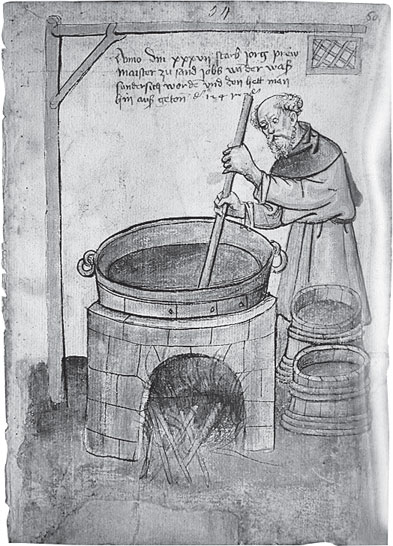 50
Anno dm xxxvii starb jorg prew
maister zu sand jobs wa der waß
sundersich worde und den hett man
hin auß geton